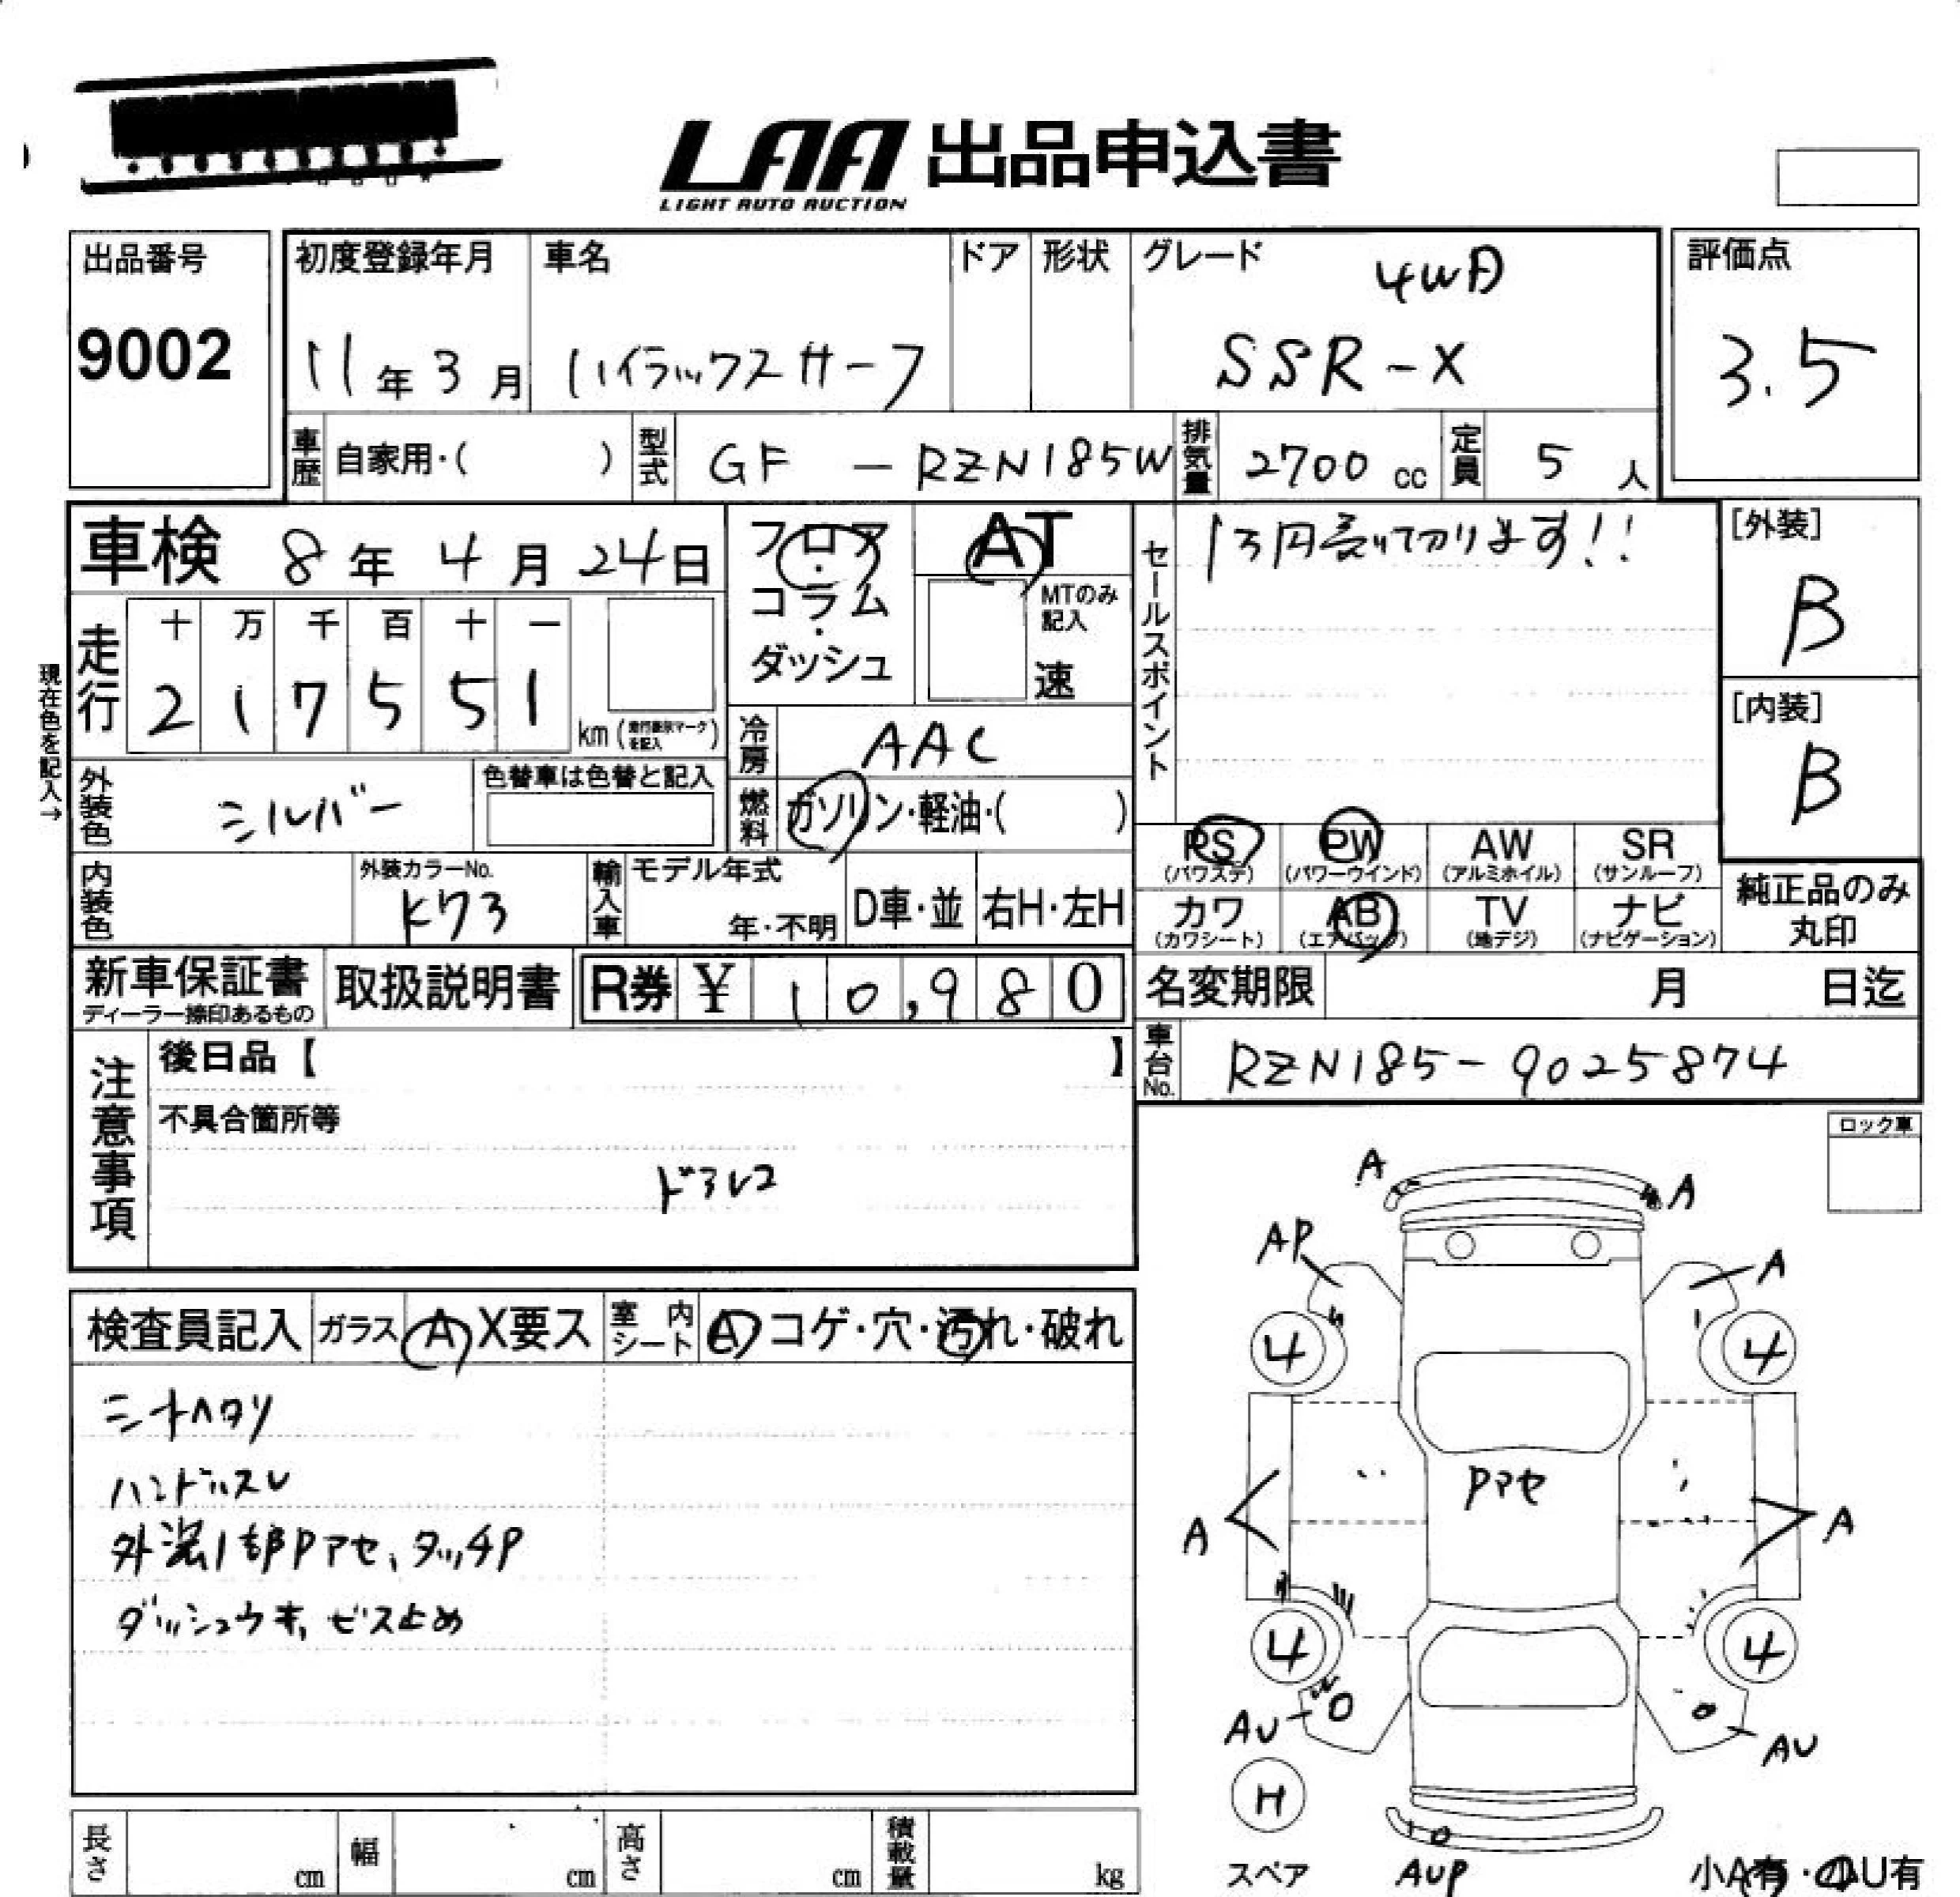 LAA 出品申込書
LIGHT AUTO AUCTION
出品番号
9002
初度登録年月
11年3月
車名
ハイラックスサーフ
ドア
形状
グレード
4WD
SSR-X
評価点
3.5
車歴
自家用・( )
型式
GF - RZN185W
排気量
2700 cc
定員
5 人
車検 8年 4月 24日
フロア・コラム・ダッシュ
AT
MTのみ記入
速
セールスポイント
1万円売り切ります!!
[外装]
B
[内装]
B
現在色を記入→
走行
十 万 千 百 十 一
2 1 7 5 5 1
km (走行表示マークを記入)
冷房
AAC
燃料
ガソリン・軽油・( )
外装色
シルバー
色替車は色替と記入
内装色
外装カラーNo.
K73
輸入車
モデル年式
年・不明
D車・並
右H・左H
PS (パワステ)
PW (パワーウインド)
AW (アルミホイル)
SR (サンルーフ)
カワ (カワシート)
AB (エアバック)
TV (地デジ)
ナビ (ナビゲーション)
純正品のみ丸印
新車保証書
ディーラー捺印あるもの
取扱説明書
R券 ¥ 10,980
名変期限 月 日迄
車台No.
RZN185-9025874
注意事項
後日品【 】
不具合箇所等
ドアレコ
ロック車
検査員記入
ガラス A X要ス
室内シート A コゲ・穴・汚れ・破れ
シートヘタリ
ハンドルスレ
外装1部Pアセ、タッチP
ダッシュウキ、ビス止め
A
A
AP
A
4
4
Pアセ
A
A
4
4
AU
AU
H
スペア
AUP
小A有・小U有
長さ cm
幅 cm
高さ cm
積載量 kg